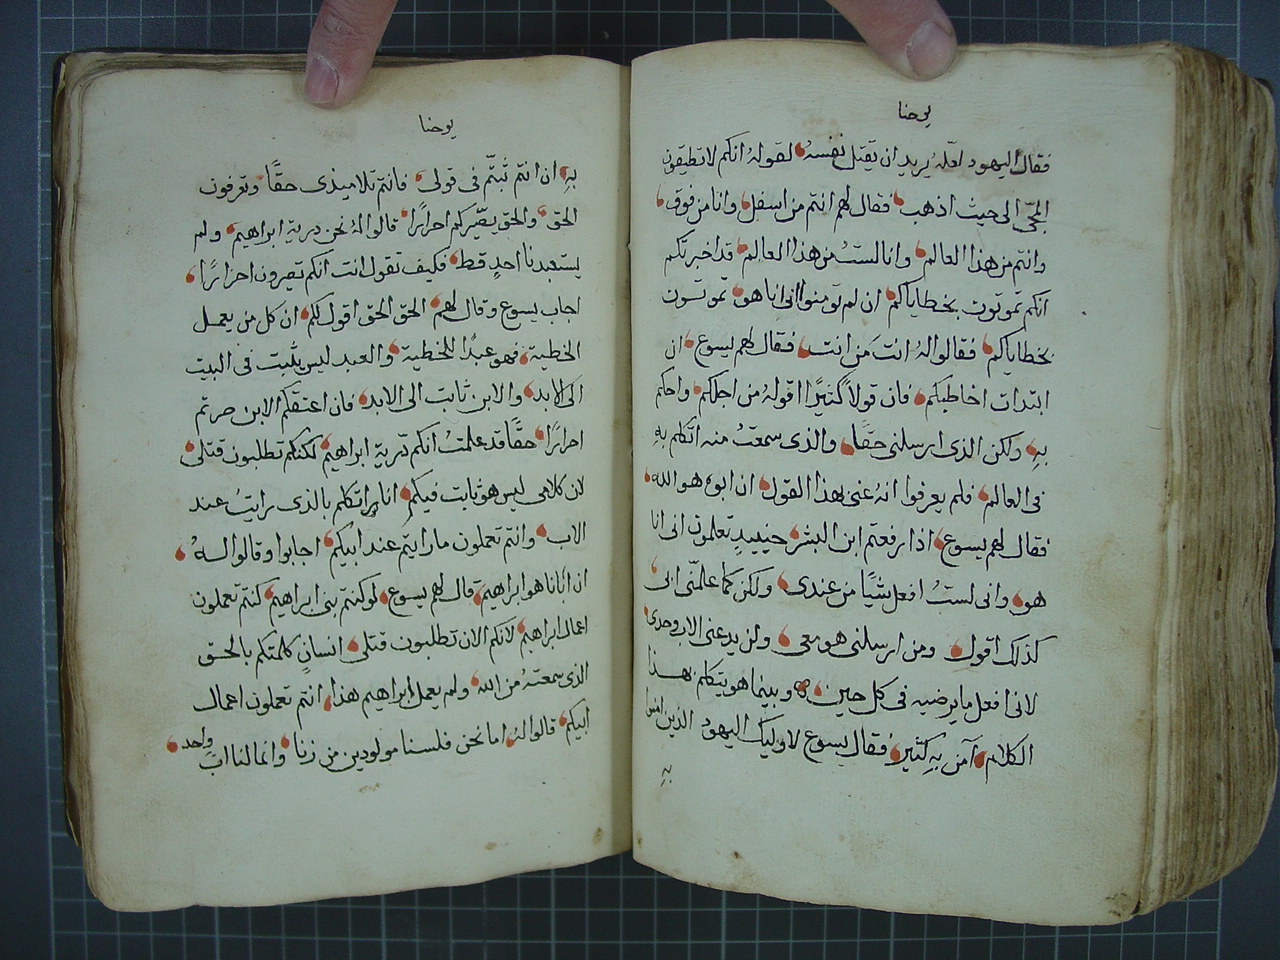 يوحنا
فقال اليهود لعلّه يريد ان يقتل نفسه لقوله انكم لا تطيقون
المجى الى حيث اذهب فقال لهم انتم من اسفل وانا من فوق
وانتم من هذا العالم وانا لستُ من هذا العالم قد اخبرتكم
انكم تموتون بخطاياكم ان لم تومنوا انى انا هو تموتون
بخطاياكم فقالوا له انتَ مَن انت فقال لهم يسوع ان
ابتدات اخاطبكم فان قولاً كثيرًا اقوله من اجلكم واحكم
بهِ ولكن الذى ارسلنى حقًا والذى سمعتُ منه اتكلم بهِ
فى العالم فلم يعرفوا انهُ عنى بهذا القول ان ابوه هو الله
فقال لهم يسوع اذا رفعتم ابن البشر حينيدٍ تعلمون انى انا
هو وانى لستُ افعل شيًا من عندى ولكن كما علمنى ابى
كذلك اقول ومن ارسلنى هو معى ولن يدعنى الاب وحدى
لانى افعل ما يرضيه فى كل حين وبينما هو يتكلم بهذا
الكلام آمن بهِ كثير فقال يسوع لاوليك اليهود الذين امنوا
بهِ
يوحنا
بهِ ان انتم ثبتّم فى قولى فانتم تلاميذى حقًّا وتعرفون
الحق والحق يصيّركم احرارًا قالوا لهُ نحن ذرية ابراهيم ولم
يستعبدنا احدٍ قط فكيف تقول انت انكم تصيرون احرارًا
اجاب يسوع وقال لهم الحق الحق اقول لكم ان كل من يعمل
الخطية فهو عبدًا للخطية والعبد ليس يثبت فى البيت
الى الابد والابن ثابت الى الابد فان اعتقكم الابن صرتم
احرارًا حقًا قد علمتُ انكم ذرية ابراهيم لكنكم تطلبون قتلى
لان كلامى ليس هو ثابت فيكم انا اتكلم بالذى رايتُ عند
الاب وانتم تعملون ما رايتم عند ابيكم اجابوا وقالوا لهُ
ان ابانا هو ابراهيم قال لهم يسوع لو كنتم بنى ابراهيم كنتم تعملون
اعمال ابراهيم لانكم الان تطلبون قتلى انسانٍ كلمتكم بالحق
الذى سمعتهُ من الله ولم يعمل ابراهيم هذا انتم تعملون اعمال
ابيكم قالوا لهُ اما نحن فلسنا مولودين من زنا وانما لنا اب واحد